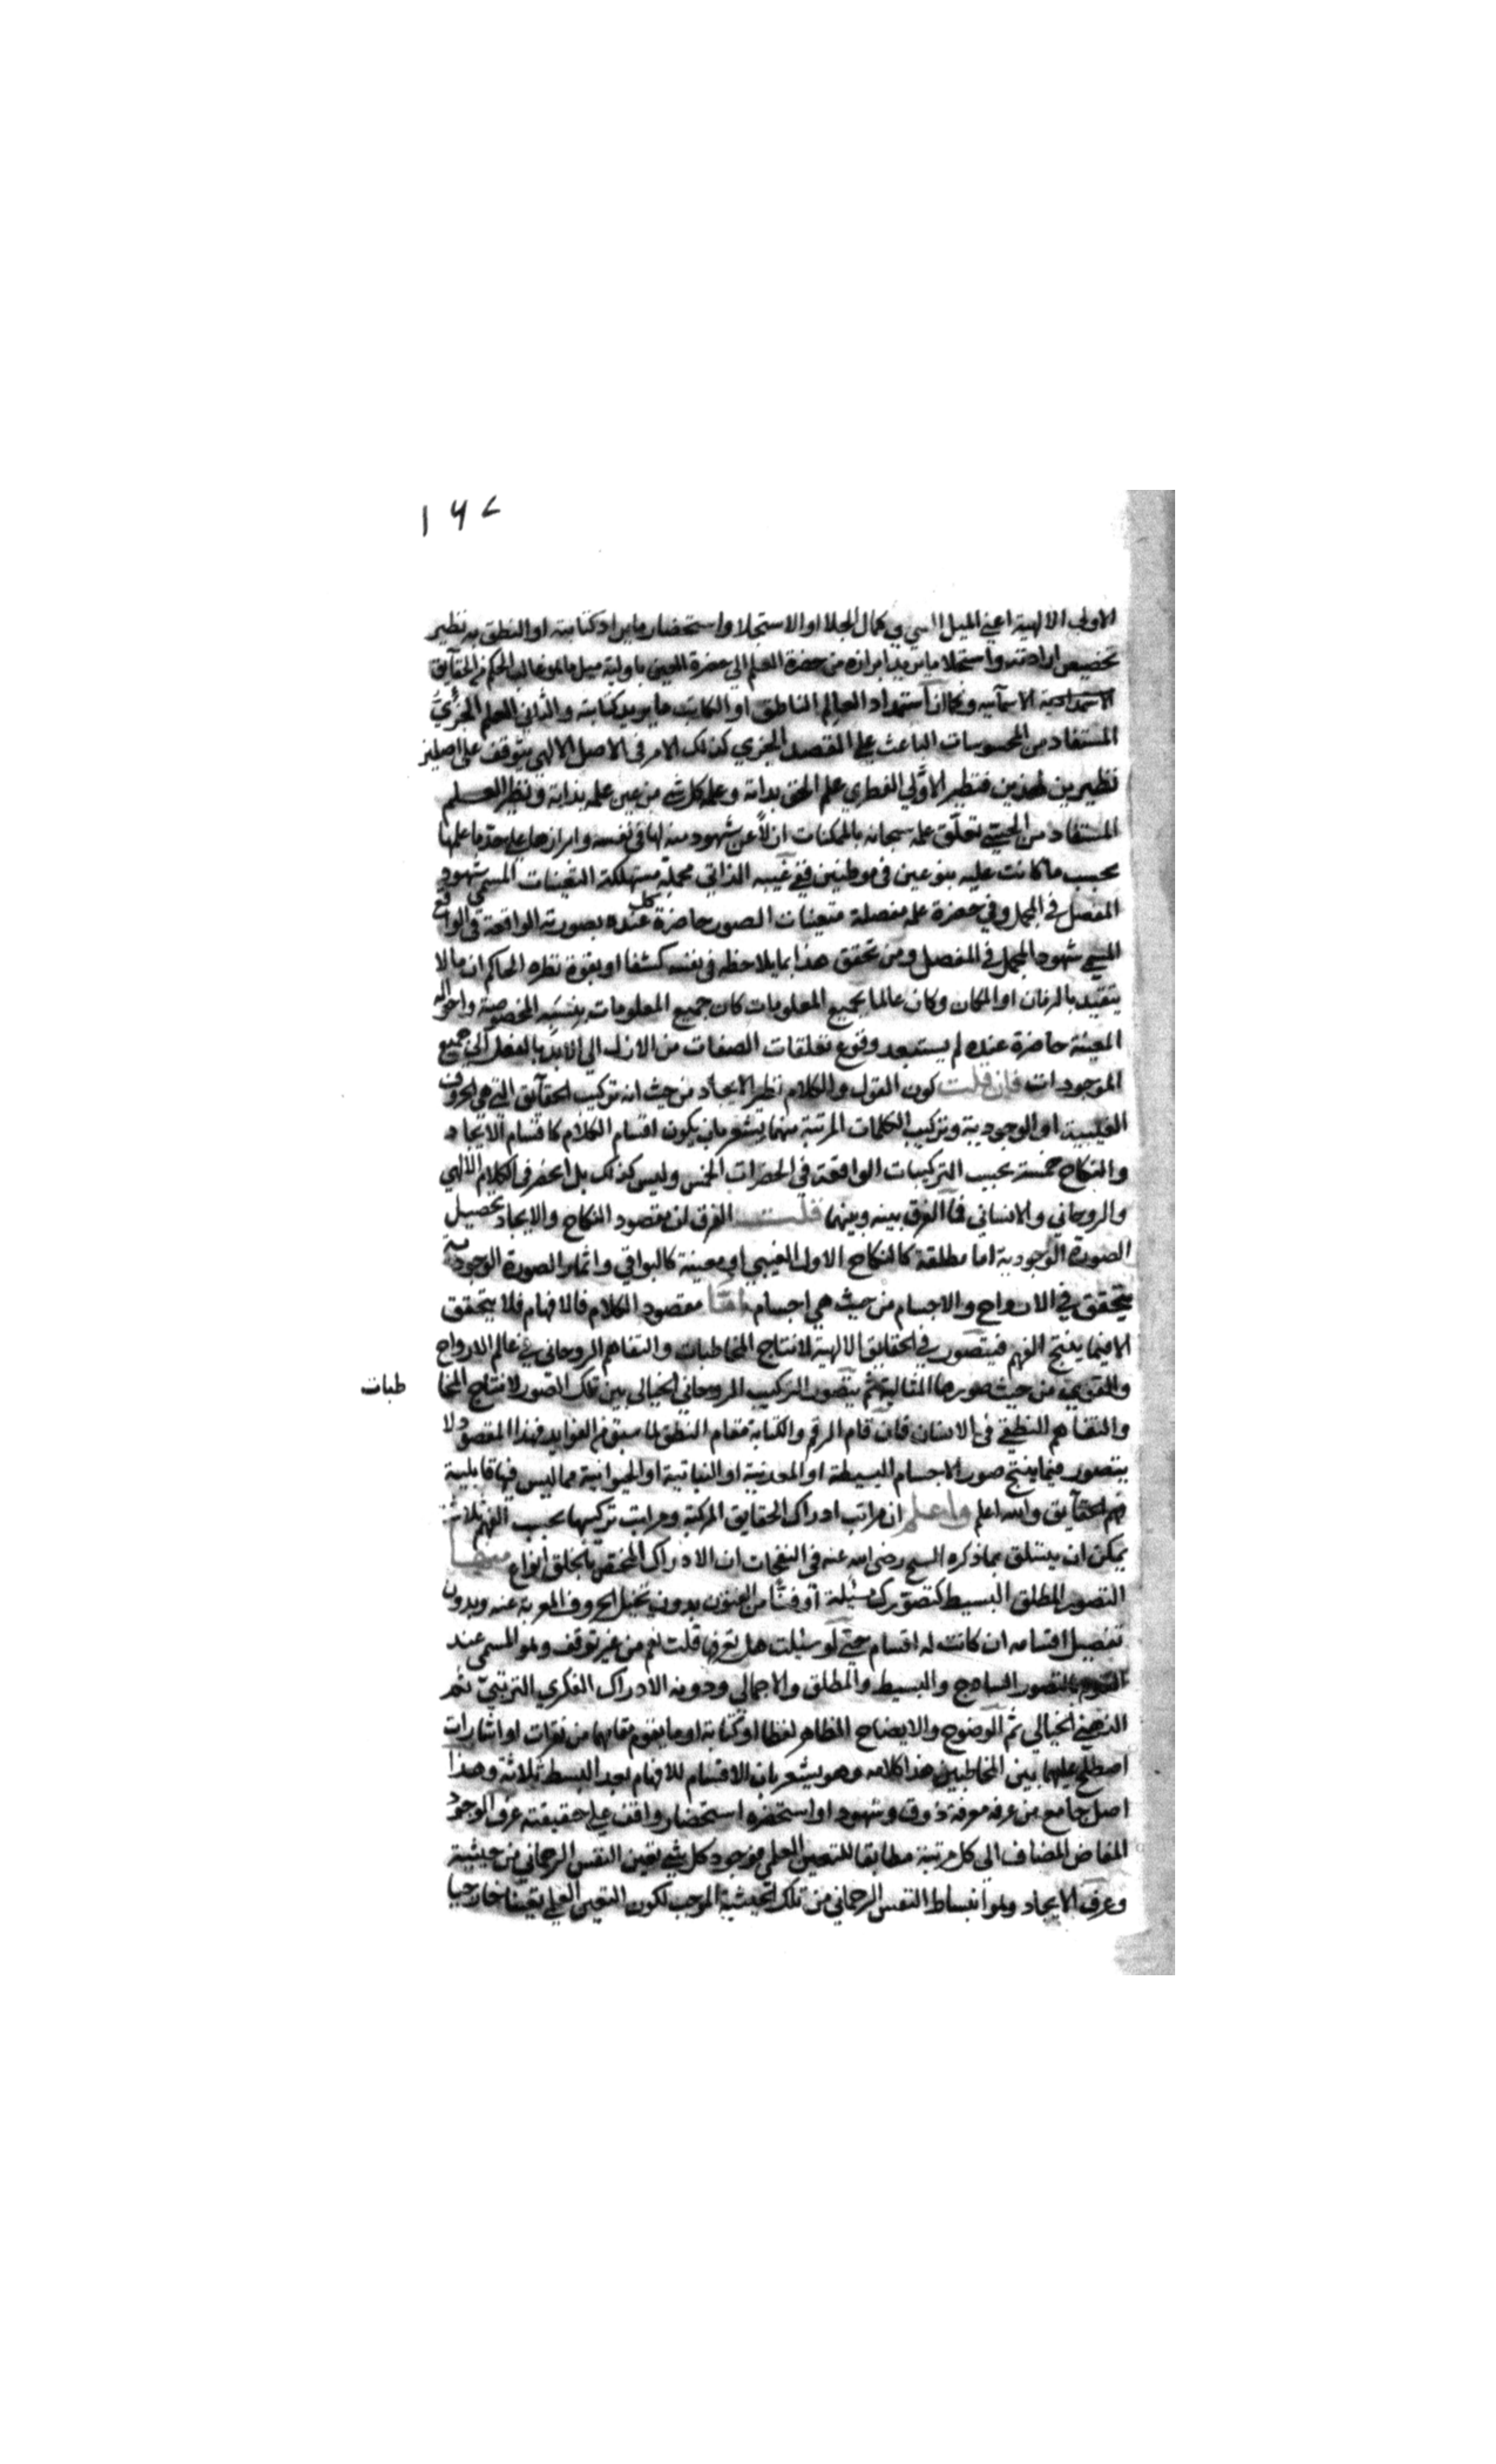 ١٦٧
الاولى الالهية اعني الميل الى كمال الجلا او الاستجلا واستحضار ما يراد كتابته او النطق به نظير
تخصيص ارادته واستجلا ما يريد ابرازه من حضرة العلم الى حضرة العين باولية ميل ما لموغالب الحكم من الحقآيق
الاسمآئيه وكما ان استمداد العالم الناطق او الكاتب ما يريد كتابته والثاني العلم الجزئي
المستفاد من المحسوسات الباعث على القصد الجزي كذلك الامر فى الاصل الالهي يتوقف على اصلين
نظيرين لهذين فنظير الاولي الفطري علم الحق بذاته وعلمه كل شي من عين علمه بذاته ونظير العلم
المستفاد من الحس تعلق علمه سبحانه بالممكنات ازلاً عن شهود منه لها في نفسه وابرازها على حد ما علمها
بحسب ما كانت عليه بنوعين فى موطنين ففي غيبه الذاتي مجملة مستهلكة التعينات المسمى شهود
المفصل في المجمل وفي حضرة علمه مفصلة متعينات الصور حاضرة كل عنده بصورته الواقعة فى الواقع
المسمى شهود المجمل فى المفصل ومن تحقق هذا بما يلاحظه فى نفسه كشفا او بقوة نظره الحاكم ان ما لا
يتقيد بالزمان او المكان وكان عالما بجميع المعلومات كان جميع المعلومات بنسبه المخصوصة واحواله
المعينة حاضرة عنده لم يستبعد وقوع تعلقات الصفات من الازل الى الابد بالفعل الى جميع
الموجودات فان قلت كون القول والكلام نظير الايجاد من حيث انه تركيب الحقآيق التي هى الحروف
الغيبية او الوجودية وتركيب الكلمات المرتبة منهما يشعر بان يكون اقسام الكلام كاقسام الايجاد
والنكاح خمسة بحسب التركيبات الواقعة في الحضرات الخمس وليس كذلك بل انحصر فى الكلام الالهي
والروحاني والانساني فما الفرق بينه وبينهما قلت الفرق ان مقصود النكاح والايجاد تحصيل
الصورة الوجودية اما مطلقة كالنكاح الاول الغيبي او معينة كالبواقي واثمار الصورة الوجودية
يتحقق في الارواح والاجسام من حيث هي اجسام واما مقصود الكلام فالافهام فلا يتحقق
الا فيما ينتج الفهم فيتصور في الحقايق الالهية لانتاج المخاطبات والتفاهم الروحاني في عالم الارواح
والقوى من حيث صورها المثالية ثم يتصور التركيب الروحاني الخيالى بين تلك الصور لانتاج المخا طبات
والتفاهم النطقي فى الانسان فان قام الرقم والكتابة مقام النطق لما سبق من الفوايد فهذا المقصود لا
يتصور فيما ينتج صور الاجسام البسيطة او المعدنية او النباتية او الحيوانية مما ليس فيها قابلية
فهم الحقآيق والله اعلم واعلم ان مراتب ادراك الحقايق المركبة ومراتب تركيبها بحسب الفهم ثلاثة
يمكن ان يتسلق بما ذكره الشيخ رضى الله عنه فى النفحات ان الادراك المختص بالخلق انواع منها
التصور المطلق البسيط كتصورك مسئلة او فناً من الفنون بدون تخيل الحروف المعربة عنه وبدون
تفصيل اقسامه ان كانت له اقسام حتى لو سئلت هل تعرفها قلت نعم من غير توقف وهو المسمى عند
القوم بالتصور الساذج والبسيط والمطلق والاجمالي ودونه الادراك الفكري الترتيبي ثم
الذهني الخيالي ثم الوضوح والايضاح الظاهر لفظا او كتابة او ما يقوم مقامهما من نقرات او اشارات
اصطلح عليها بين المخاطبين هذا كلامه وهو يشعر بان الاقسام للافهام بعد البسط ثلاثة وهذا
اصل جامع من عرفه معرفة ذوق وشهود او استحضره استحضار واقف على حقيقته عرف الوجود
المفاض المضاف الى كل مرتبة مطابقا للتعين العلمي فوجود كل شي تعين النفس الرحماني من حيثية
وعرف الايجاد وهو انبساط النفس الرحماني من تلك الحيثية الموجب لكون التعين العلمي تعينا خارجيا